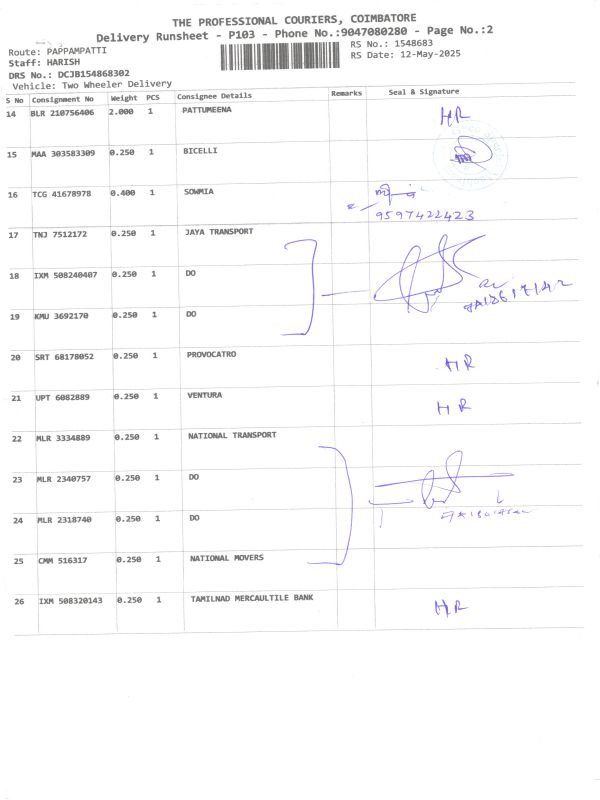 THE PROFESSIONAL COURIERS, COIMBATORE
Delivery Runsheet - P103 - Phone No.:9047080280 - Page No.:2
Route: PAPPAMPATTI
RS No.: 1548683
Staff: HARISH
RS Date: 12-May-2025
DRS No.: DCJB154868302
Vehicle: Two Wheeler Delivery
S No Consignment No Weight PCS Consignee Details Remarks Seal & Signature
14 BLR 210756406 2.000 1 PATTUMEENA HR
15 MAA 303583309 0.250 1 BICELLI
16 TCG 41678978 0.400 1 SOWMIA
9597422423
17 TNJ 7512172 0.250 1 JAYA TRANSPORT
18 IXM 508240407 0.250 1 DO
19 KMU 3692170 0.250 1 DO
20 SRT 68178052 0.250 1 PROVOCATRO HR
21 UPT 6082889 0.250 1 VENTURA HR
22 MLR 3334889 0.250 1 NATIONAL TRANSPORT
23 MLR 2340757 0.250 1 DO
24 MLR 2318740 0.250 1 DO
25 CMM 516317 0.250 1 NATIONAL MOVERS
26 IXM 508320143 0.250 1 TAMILNAD MERCAULTILE BANK HR